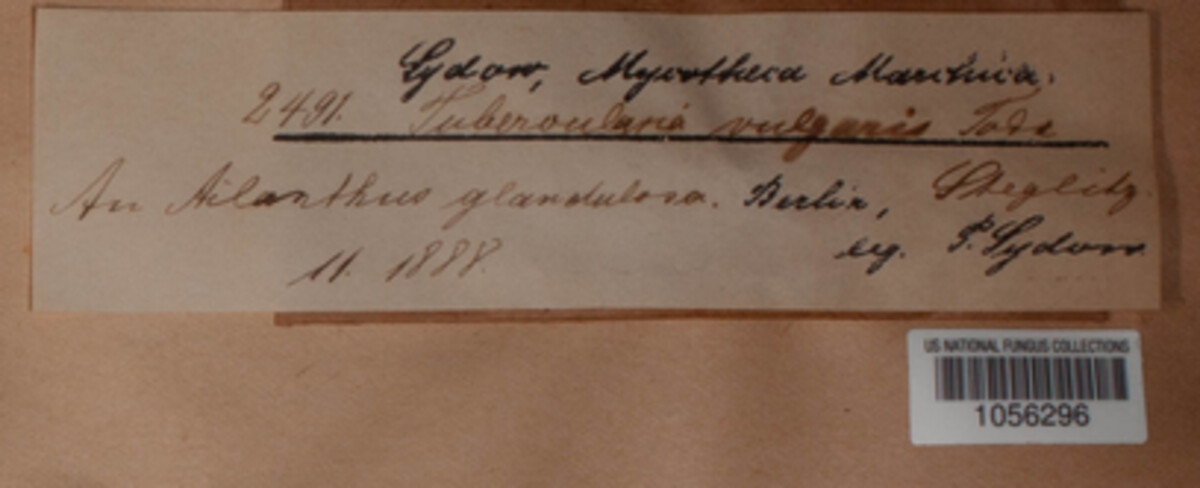 Sydow, Mycotheca Marchica.
2491. Tubercularia vulgaris Tode
An Ailanthus glandulosa. Berlin, Steglitz.
11. 1888. leg. P. Sydow.
US NATIONAL FUNGUS COLLECTIONS
1056296